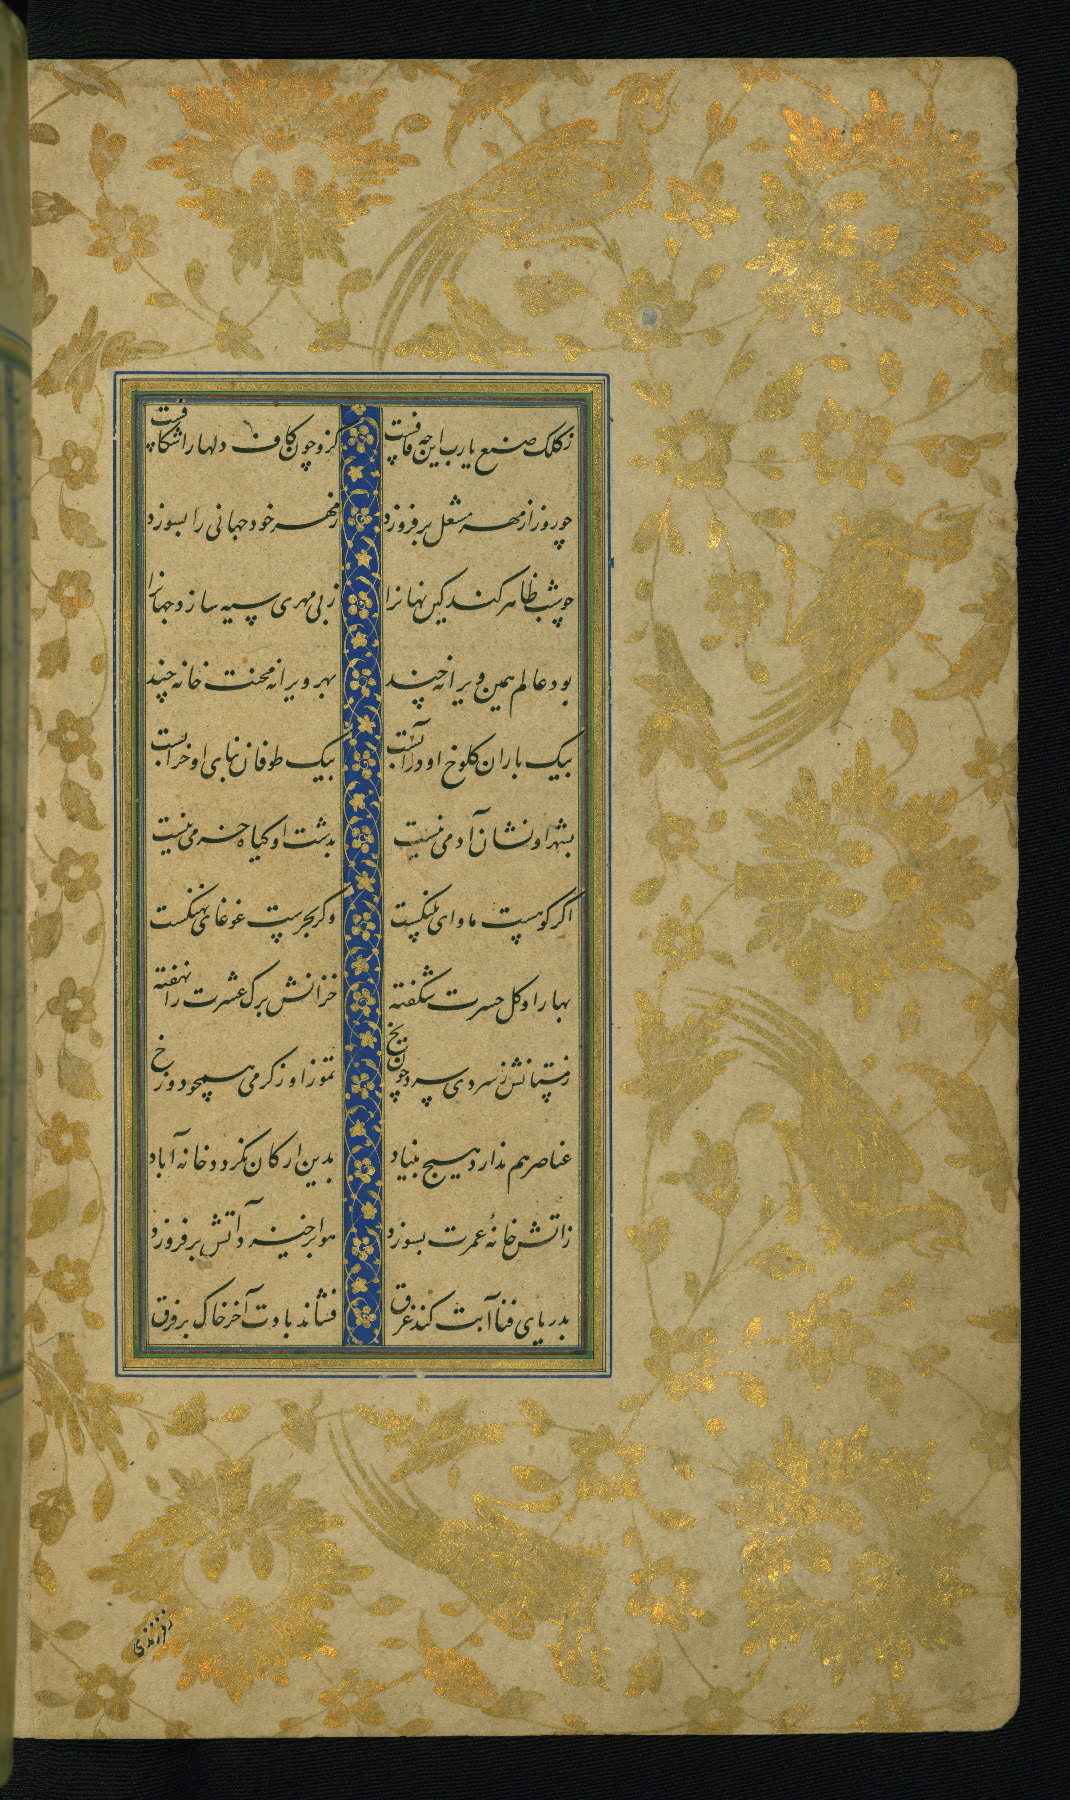 زکلک صنع یارب این چه قافست کزو چون کاف دلها را شکافست
چو روز از مهر مشعل برفروزد ز مهر خود جهانی را بسوزد
چو شب ظاهر کند کین نهانرا ز بی مهری سیه سازد جهانرا
بود عالم همین ویرانه چند بهر ویرانه محنت خانه چند
بیک باران کلوخ او در آبست بیک طوفان بنای او خرابست
بشهر او نشان آدمی نیست بدشت او کیاه خرمی نیست
اکر کوهست ماوای پلنکست وکر بحرست غوغای نهنکست
بهار او کل حسرت شکفته خزانش برک عشرت را نهفته
زمستانش ز سردی سرد چون یخ تموز او ز کرمی همچو دوزخ
عناصر هم ندارد هیچ بنیاد بدین ارکان نکردد خانه آباد
ز آتش خانهٔ عمرت بسوزد هوا برخیزد و آتش برفروزد
بدریای فنا آبت کند غرق فشاند بادت آخر خاک بر فرق